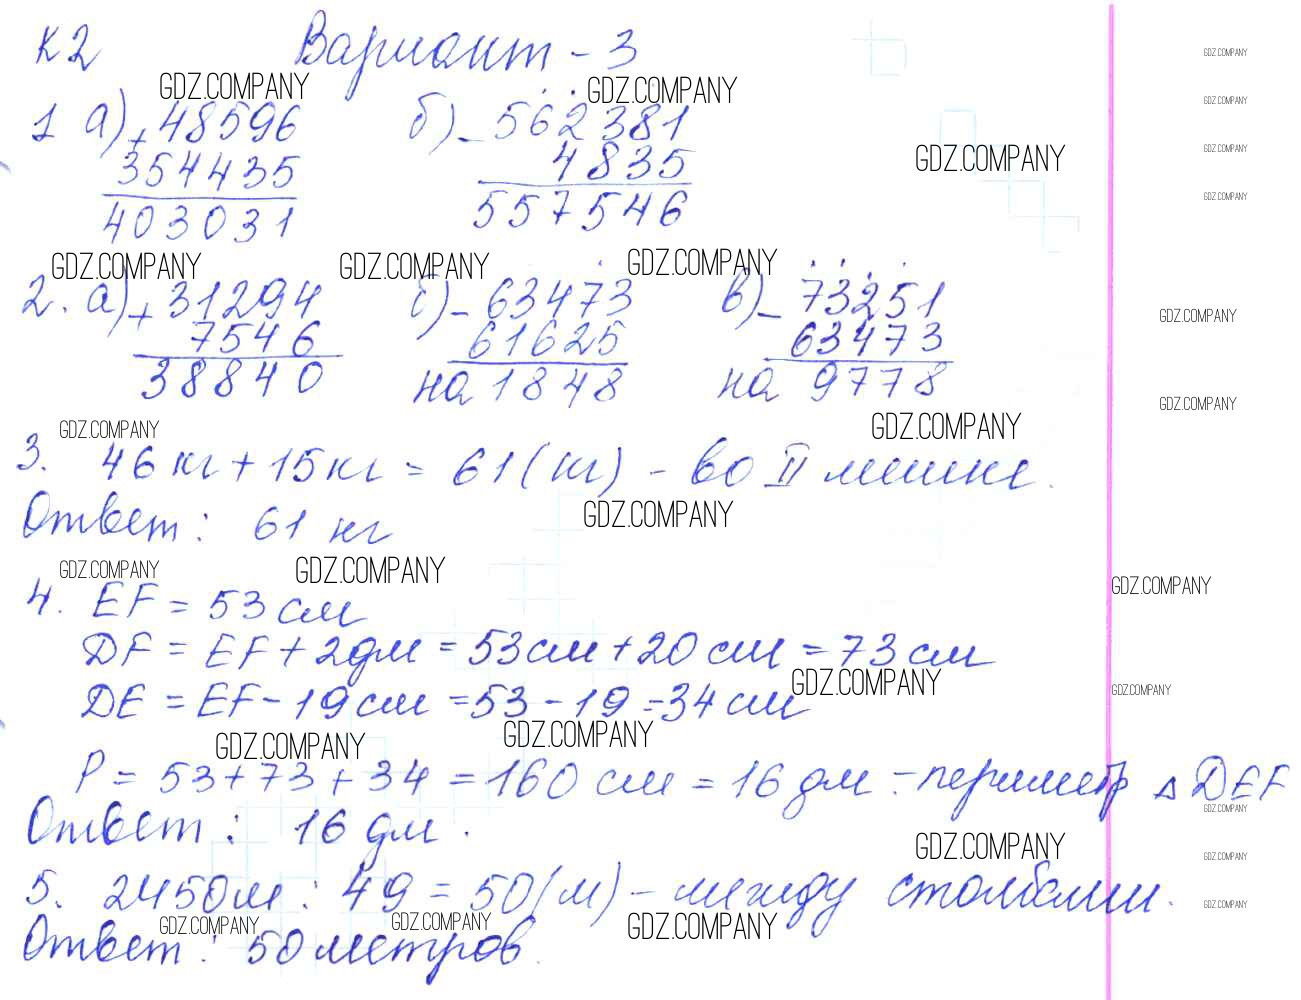 К2 Вариант - 3
GDZ.COMPANY GDZ.COMPANY
1 а) + 48596 б) - 562381
354435 4835
403031 557546
GDZ.COMPANY
GDZ.COMPANY GDZ.COMPANY GDZ.COMPANY
2. а) + 31294 б) - 63473 в) - 73251
7546 61625 63473
38840 на 1848 на 9778
GDZ.COMPANY GDZ.COMPANY
3. 46 кг + 15 кг = 61 (кг) - во II мешке.
Ответ: 61 кг
GDZ.COMPANY
GDZ.COMPANY GDZ.COMPANY
4. EF = 53 см
DF = EF + 2дм = 53 см + 20 см = 73 см
GDZ.COMPANY
DE = EF - 19 см = 53 - 19 = 34 см
GDZ.COMPANY GDZ.COMPANY
P = 53 + 73 + 34 = 160 см = 16 дм - периметр △ DEF
Ответ: 16 дм.
GDZ.COMPANY
5. 2450м : 49 = 50 (м) - между столбами.
GDZ.COMPANY GDZ.COMPANY GDZ.COMPANY
Ответ: 50 метров.
GDZ.COMPANY
GDZ.COMPANY
GDZ.COMPANY
GDZ.COMPANY
GDZ.COMPANY
GDZ.COMPANY
GDZ.COMPANY
GDZ.COMPANY
GDZ.COMPANY
GDZ.COMPANY
GDZ.COMPANY